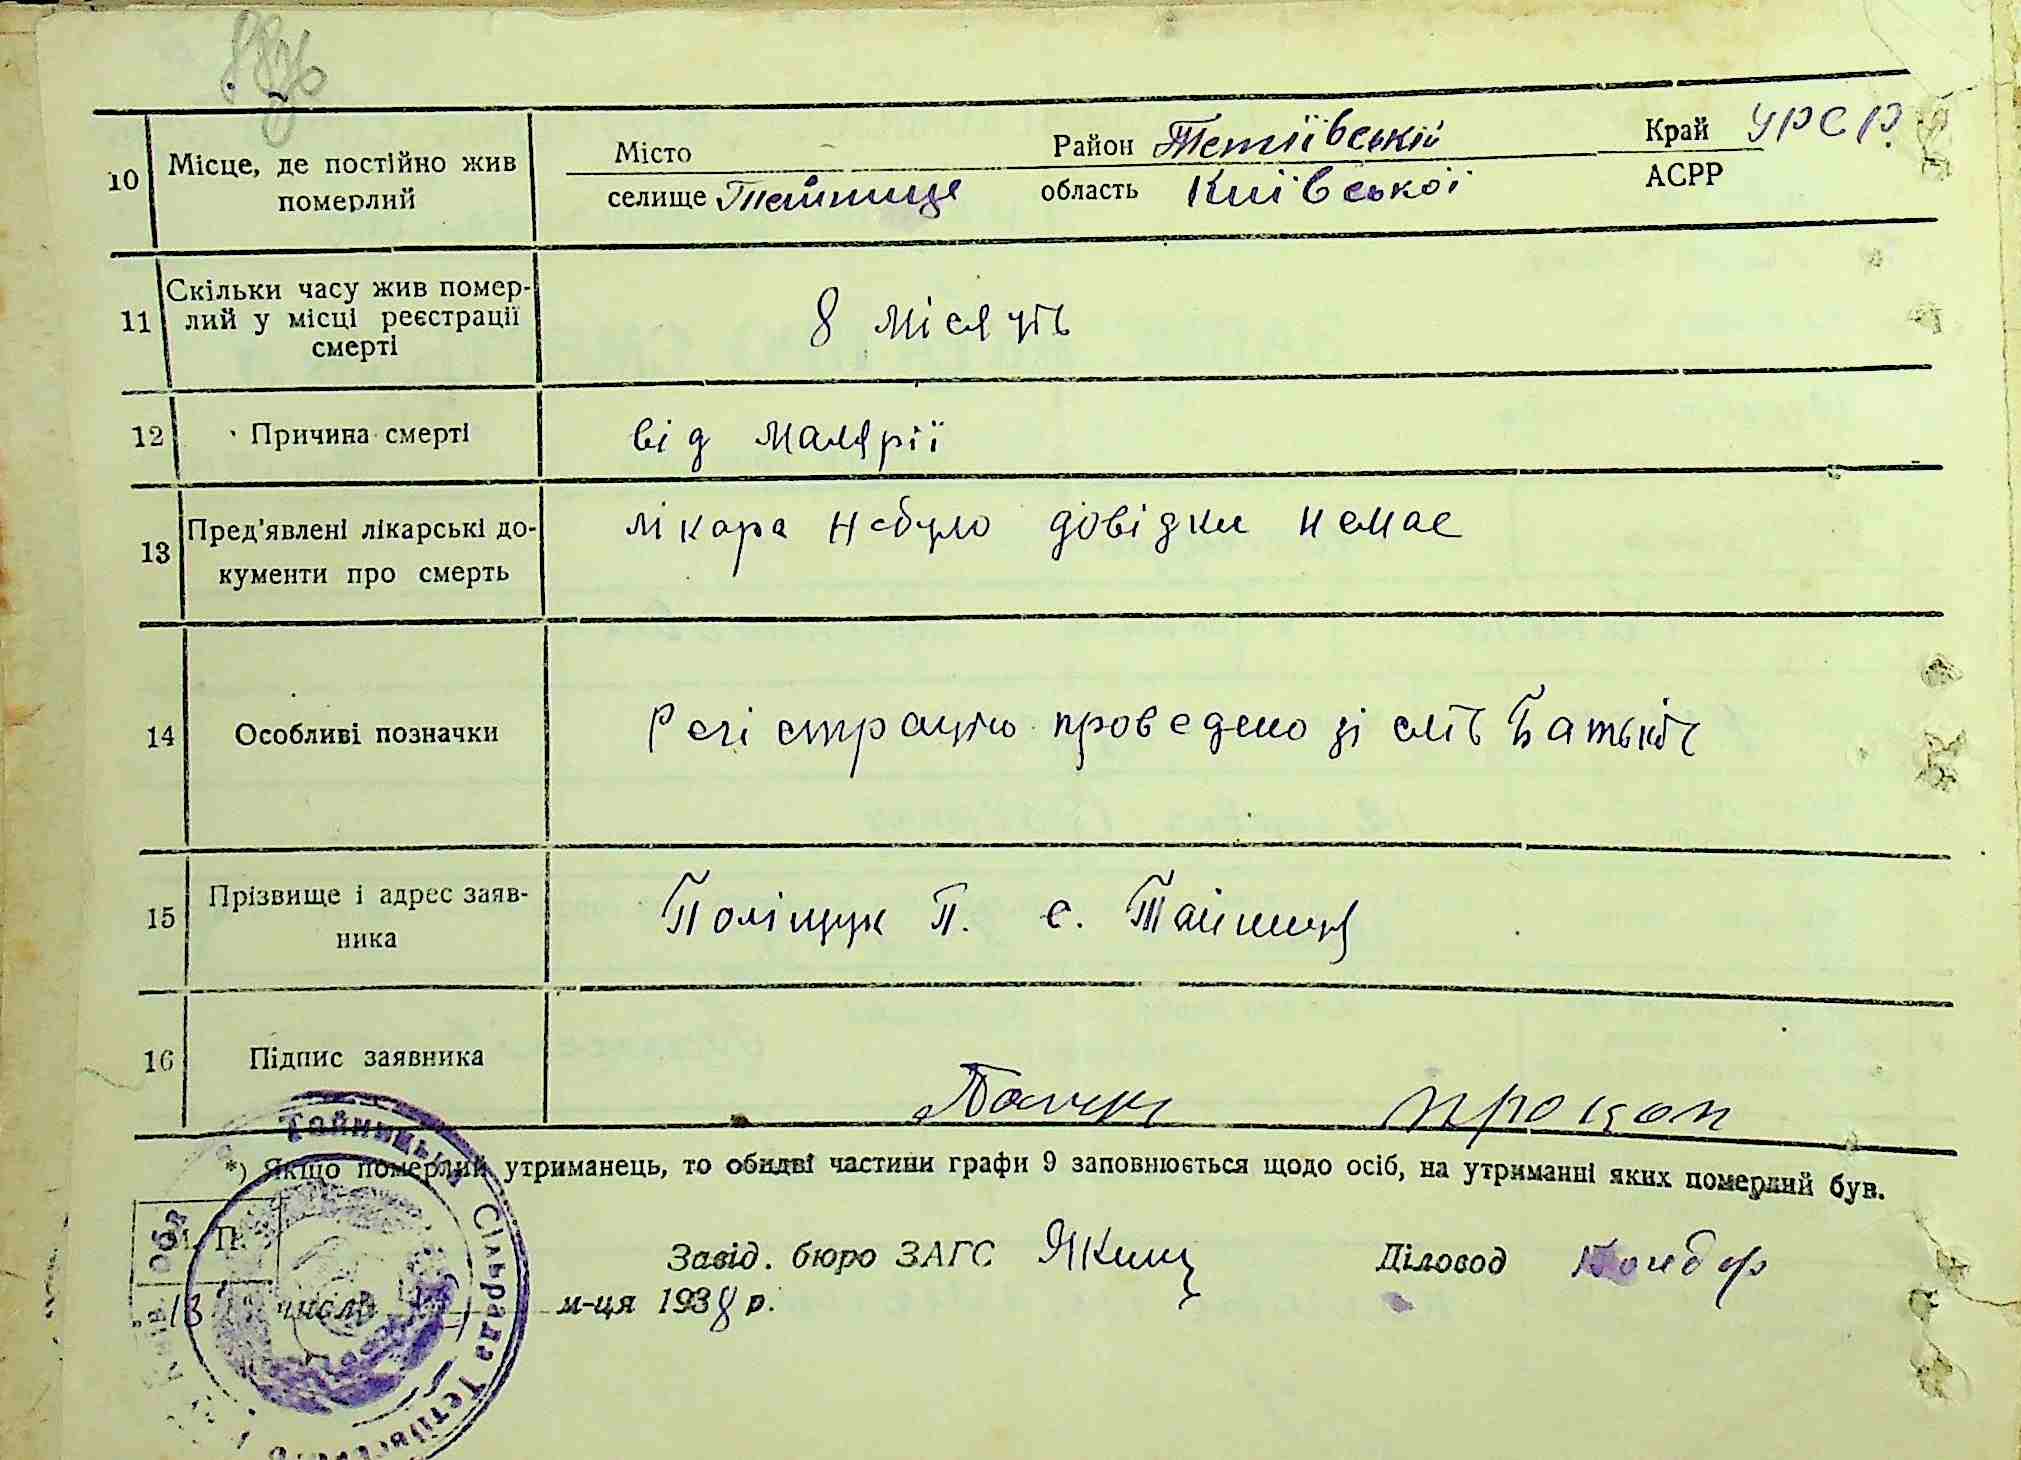 10 Місце, де постійно жив померлий
Місто Район Тетіївській Край УРСР
селище Тайниця область Київської АСРР
11 Скільки часу жив помер-
лий у місці реєстрації
смерті
8 місяців
12 Причина смерті від малярії
13 Пред'явлені лікарські до-
кументи про смерть
лікара небуло довідки немає
14 Особливі позначки Регістрацію проведено зі слів батьків
15 Прізвище і адрес заяв-
ника
Поліщук П. с. Тайниця
16 Підпис заявника
Прокоп
*) Якщо померлий утриманець, то обидві частини графи 9 заповнюється щодо осіб, на утриманні яких померлий був.
М. П.
Завід. бюро ЗАГС Діловод
13 числа м-ця 1938 р.
Тайницька Сільрада Тетіївського